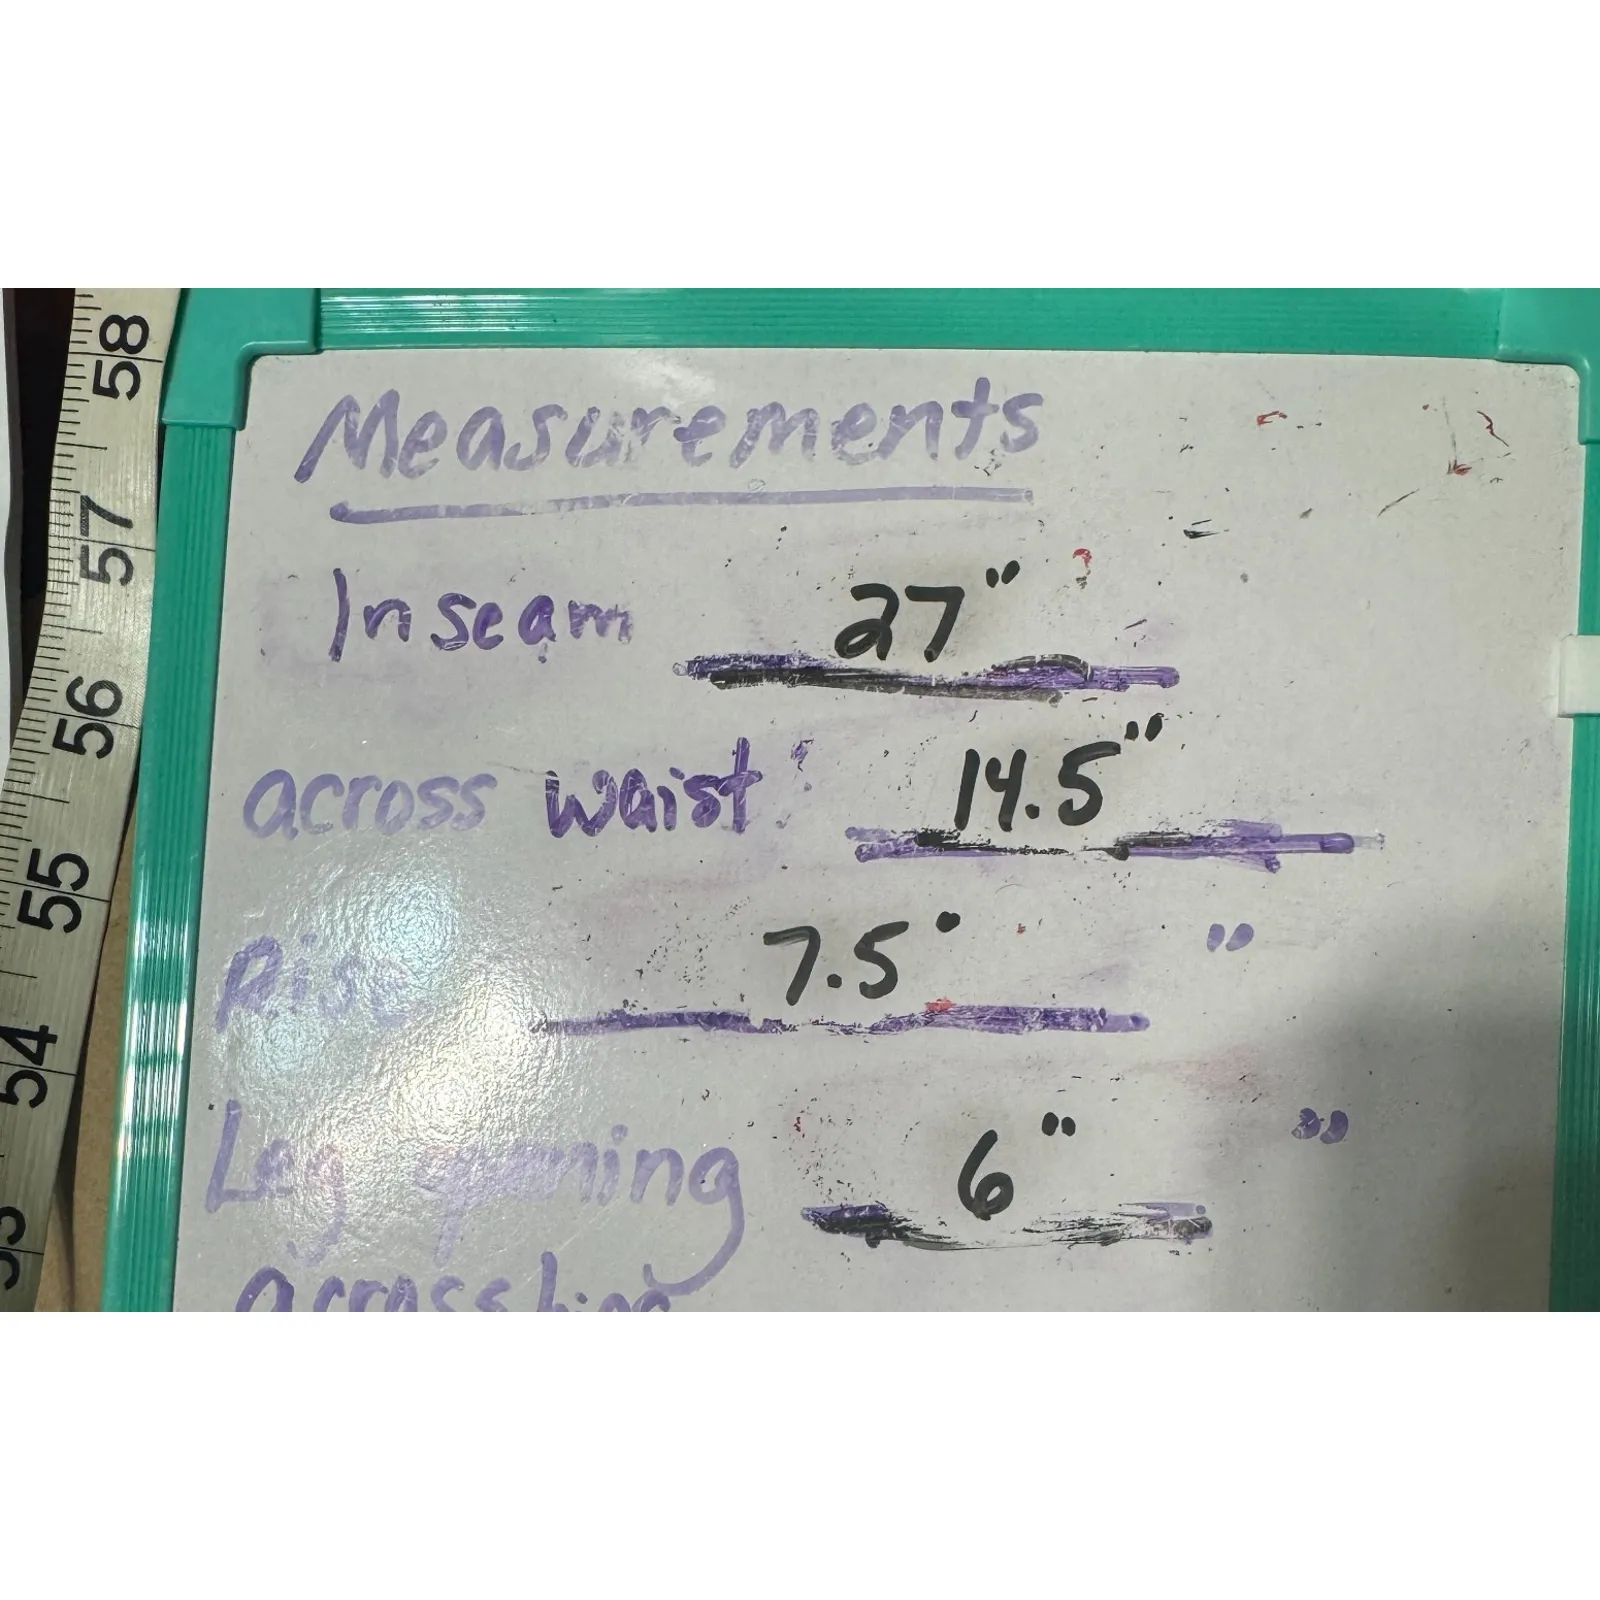 Measurements
Inseam 27"
across waist: 14.5"
Rise 7.5" "
Leg opening 6" "
across hips
58
57
56
55
54
53